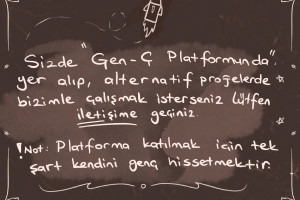 Sizde "Gen-Ç Platformunda"
yer alıp, alternatif projelerde
bizimle çalışmak isterseniz lütfen
iletişime geçiniz.
! Not: Platforma katılmak için tek
şart kendini genç hissetmektir.